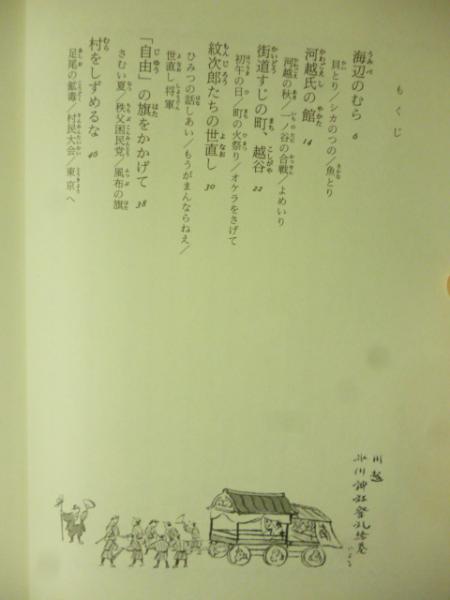 もくじ
海辺のむら 6
貝とり/シカのつの/魚とり
河越氏の館 14
河越の秋/一ノ谷の合戦/よめいり
街道すじの町、越谷 22
初午の日/町の火祭り/オケラをさげて
紋次郎たちの世直し 30
ひみつの話しあい/もうがまんならねえ/
世直し将軍
「自由」の旗をかかげて 38
さむい夏/秩父困民党/風布の旗
村をしずめるな 46
足尾の鉱毒/村民大会/東京へ
川越
氷川神社祭礼絵巻